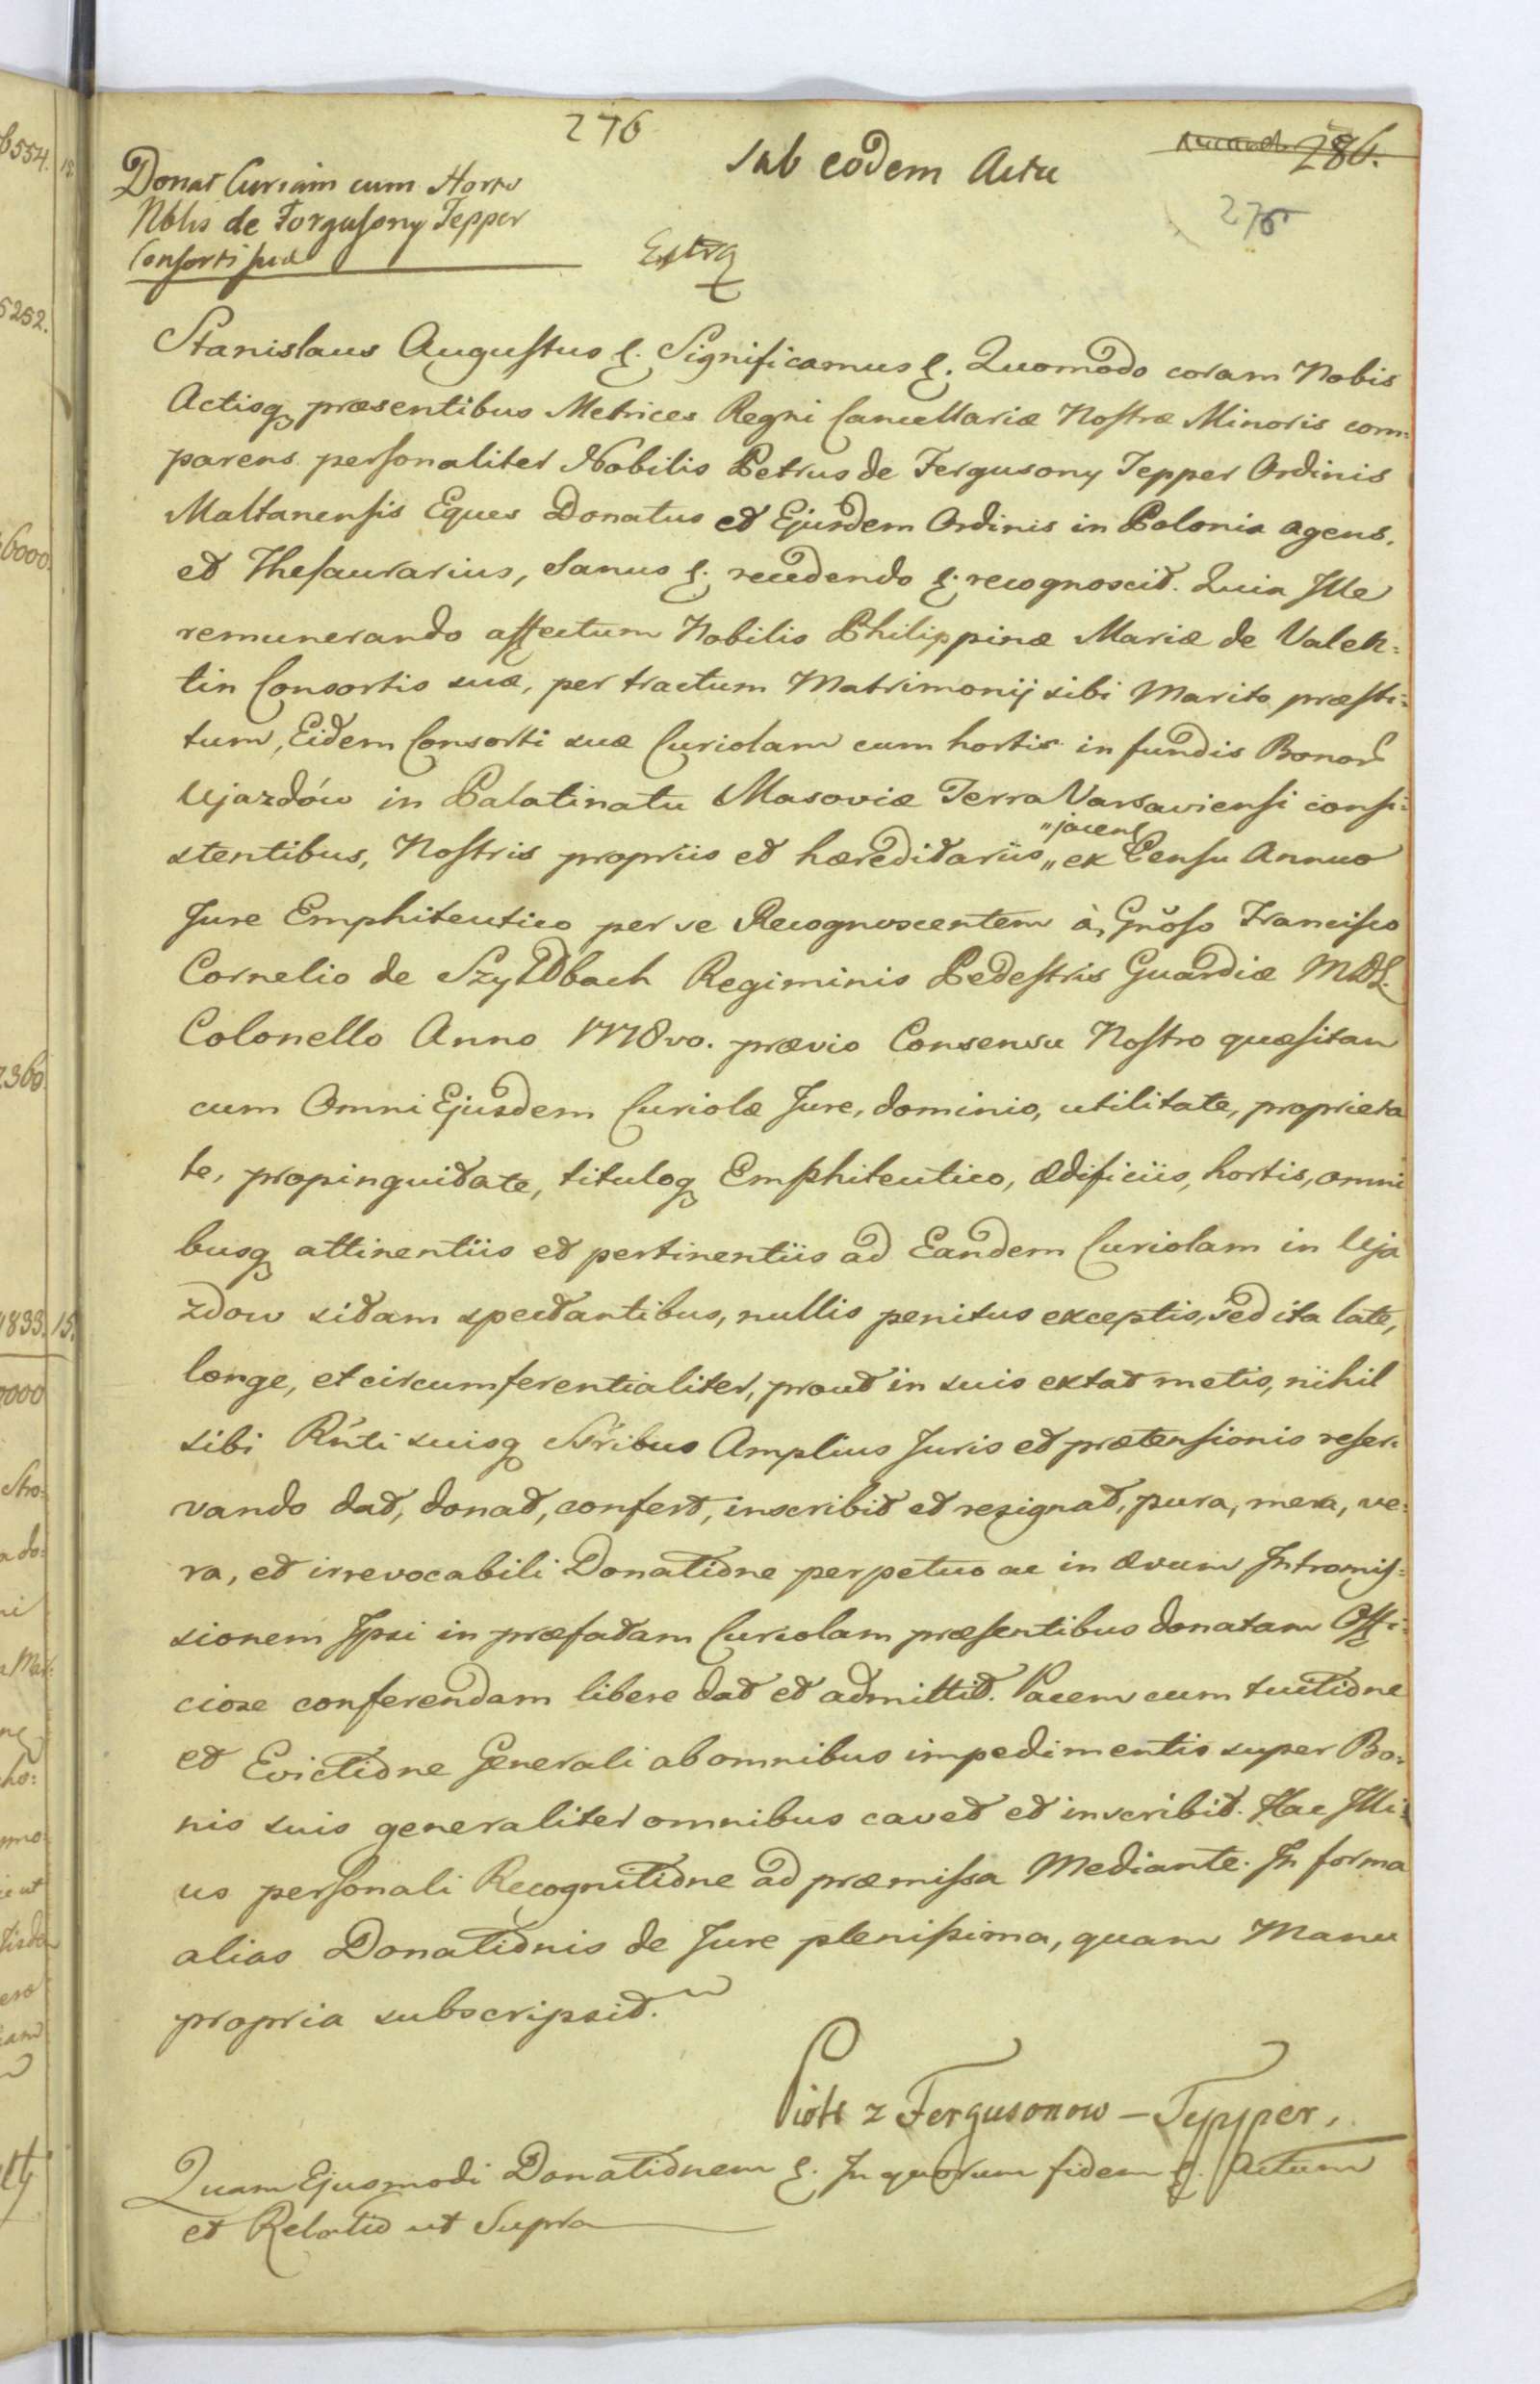 276
sub eodem Actu
286.
276
Donat Curiam cum Horto
Nblis de Fergusony Tepper
Consorti suæ
Extra
Stanislaus Augustus &. Significamus &. Quomodo coram Nobis
Actisq præsentibus Metrices Regni Cancellariæ Nostræ Minoris com=
parens personaliter Nobilis Petrus de Fergusony Tepper Ordinis
Maltanensis Eques Donatus et Ejusdem Ordinis in Polonia agens.
et Thesaurarius, Sanus &. recedendo &. recognoscit. Quia Ille
remunerando affectum Nobilis Philippinæ Mariæ de Valen=
tin Consortis suæ, per tractum Matrimonij sibi Marito præsti=
tum, Eidem Consorti suæ Curiolam cum hortis in fundis Bonor
Ujazdów in Palatinatu Masoviæ Terra Varsaviensi consi=
stentibus, Nostris propriis et hæreditariis „jacent„ ex Censu Annuo
Jure Emphiteutico per se Recognoscentem à Gnõso Francisco
Cornelio de Szyldbach Regiminis Pedestris Guardiæ MDL.
Colonello Anno 1778vo. prævio Consensu Nostro quæsitam
cum Omni Ejusdem Curiolæ Jure, dominio, utilitate, proprieta
te, propinquitate, tituloq Emphiteutico, ædificiis, hortis, omni
busq attinentiis et pertinentiis ad Eandem Curiolam in Uja
zdow sitam spectantibus, nullis penitus exceptis, sed ita late,
longe, et circumferentialiter, prout in suis extat metis, nihil
sibi Rńti suisq Sśribus Amplius Juris et prætensionis reser=
vando dat, donat, confert, inscribit et resignat, pura, mera, ve=
ra, et irrevocabili Donatione perpetuo ac in ævum Intromis=
sionem Ipsi in præfatam Curiolam præsentibus donatam Offi=
ciose conferendam libere dat et admittit. Pacem cum tuitione
et Evictione Generali ab omnibus impedimentis super Bo=
nis suis generaliter omnibus cavet et inscribit. Hac Illi=
us personali Recognitione ad præmissa Mediante. In forma
alias Donationis de Jure plenissima, quam Manu
propria subscripsit.
Piotr z Fergusonow – Tepper,
Quam Ejusmodi Donationem &. In quorum fidem &. Actum
et Relatio ut Supra